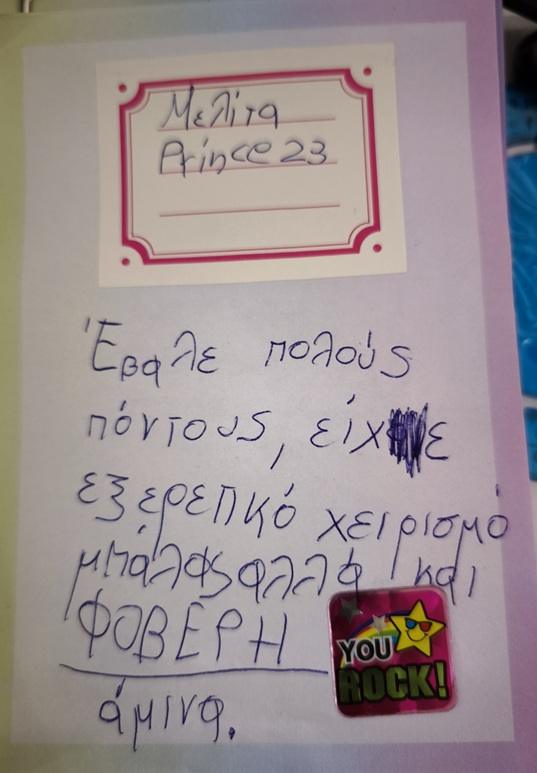 Μελίτα
Prince 23
Έβαλε πολούς
πόντους, είχε
εξερεπκό χειρισμό
μπάλας αλλά και
ΦΟΒΕΡΗ
άμινα.
YOU
ROCK!